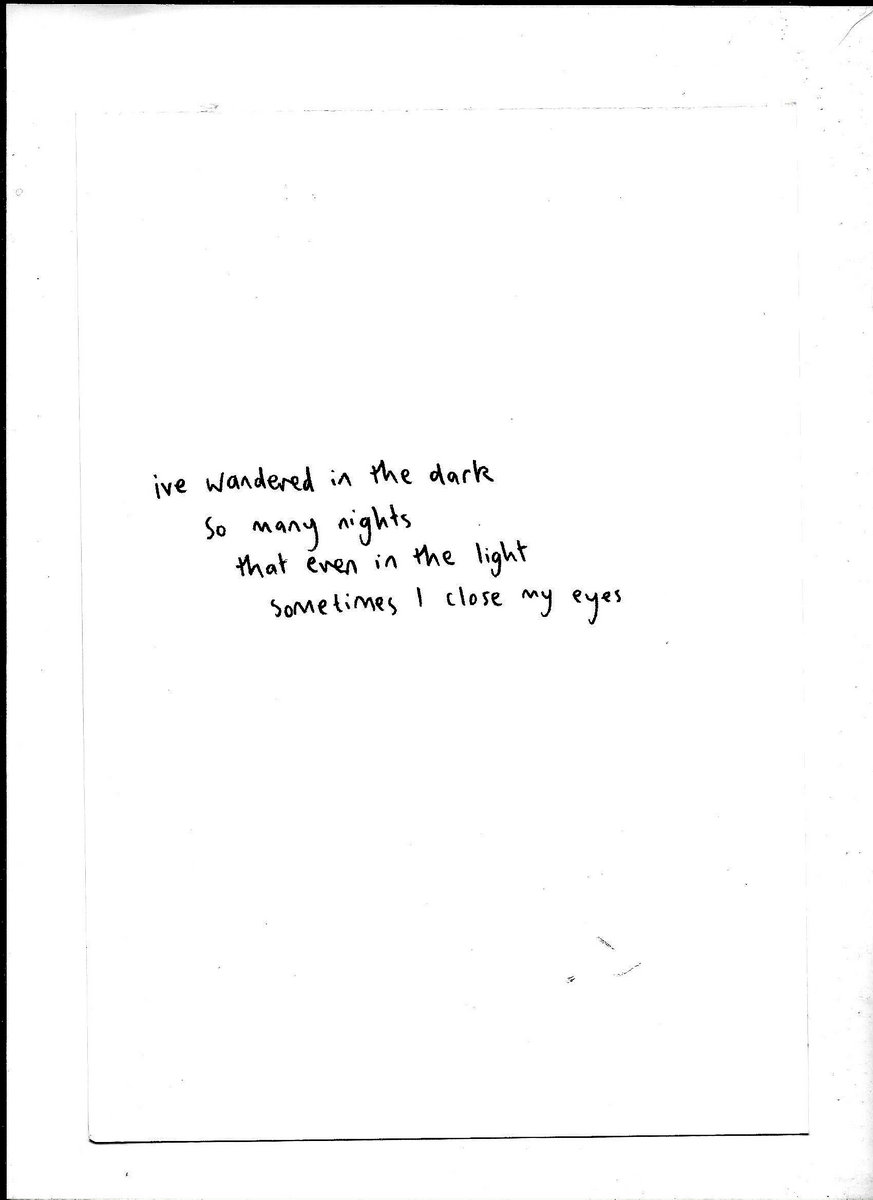 ive wandered in the dark
so many nights
that even in the light
sometimes I close my eyes